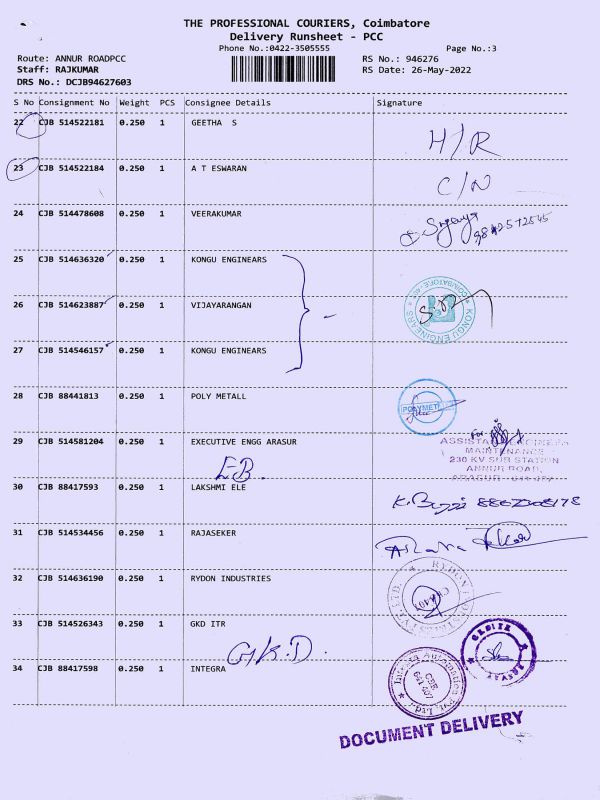 THE PROFESSIONAL COURIERS, Coimbatore
Delivery Runsheet - PCC
Phone No.:0422-3505555
Page No.:3
Route: ANNUR ROADPCC
RS No.: 946276
Staff: RAJKUMAR
RS Date: 26-May-2022
DRS No.: DCJB94627603
S No Consignment No Weight PCS Consignee Details Signature
22 CJB 514522181 0.250 1 GEETHA S H/R
23 CJB 514522184 0.250 1 A T ESWARAN C/N
24 CJB 514478608 0.250 1 VEERAKUMAR
25 CJB 514636320 0.250 1 KONGU ENGINEARS
26 CJB 514623887 0.250 1 VIJAYARANGAN
KONGU ENGINEARS
27 CJB 514546157 0.250 1 KONGU ENGINEARS
28 CJB 88441813 0.250 1 POLY METALL
29 CJB 514581204 0.250 1 EXECUTIVE ENGG ARASUR
For
E-B.
MAINTENANCE
230 KV SUB STATION
ANNUR ROAD,
30 CJB 88417593 0.250 1 LAKSHMI ELE
31 CJB 514534456 0.250 1 RAJASEKER
32 CJB 514636190 0.250 1 RYDON INDUSTRIES
33 CJB 514526343 0.250 1 GKD ITR
G.K.D.
34 CJB 88417598 0.250 1 INTEGRA
DOCUMENT DELIVERY